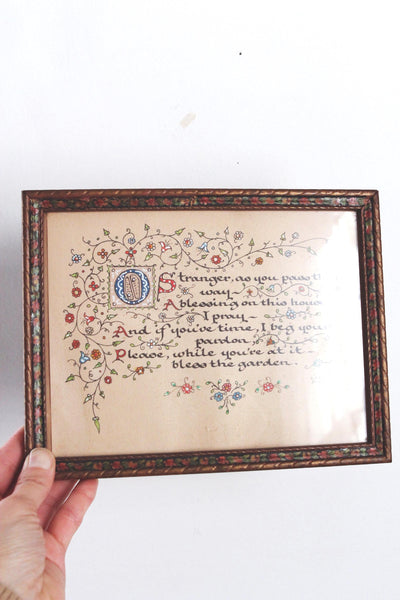 O Stranger, as you pass
way~
A blessing on this house
I pray~
And if you've time, I beg your
pardon,
Please, while you're at it~
bless the garden.